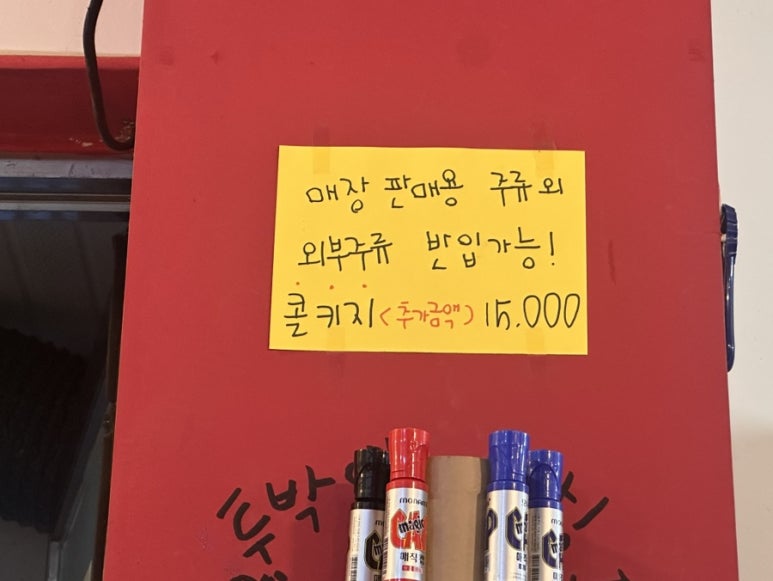 매장 판매용 주류 외
외부주류 반입가능!
콜키지<추가금액> 15.000
monami
magic
매직